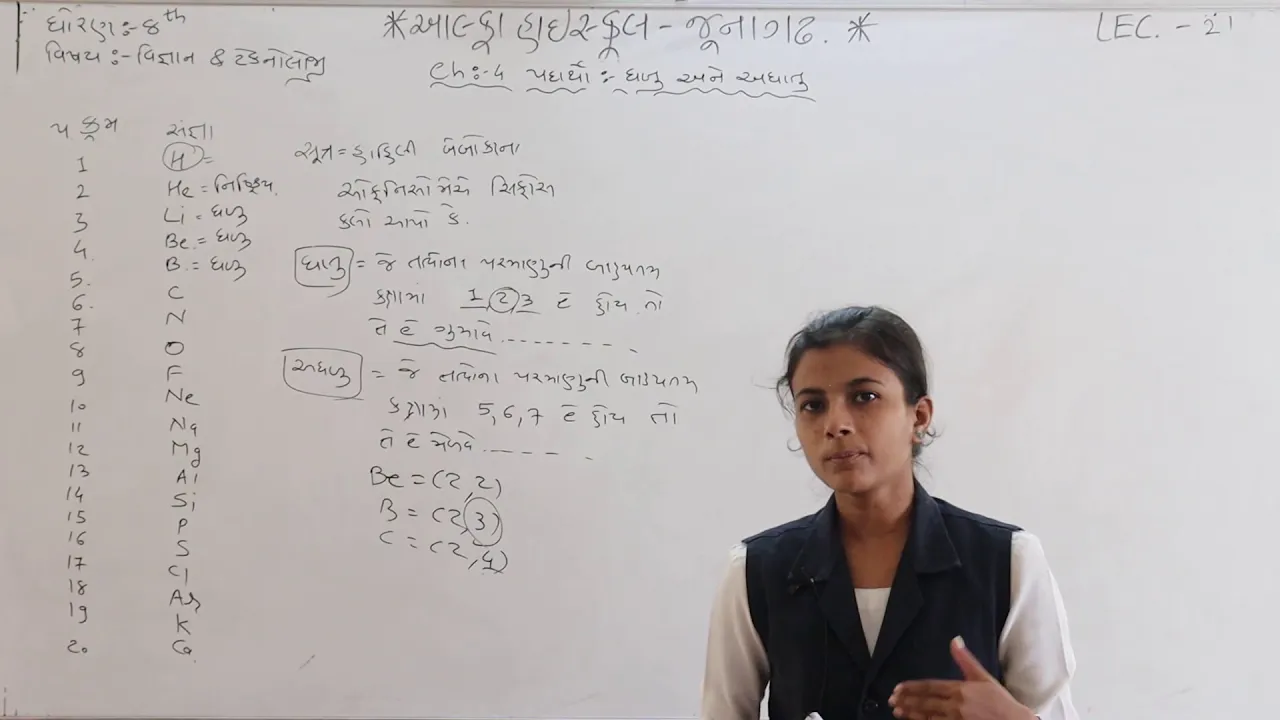 ધોરણ:- ૪th
*આલ્ફા હાઇસ્કૂલ - જૂનાગઢ. *
LEC. - 21
વિષય :- વિજ્ઞાન & ટેકનોલોજી
Ch :- 4 પદાર્થો :- ધાતુ અને અધાતુ
પ ક્રમ સંજ્ઞા
1 H =
સૂત્ર = હાહિલી બેબોકાના
2 He = નિષ્ક્રિય.
ઓફનિસોમેએ સિફોસ
3 Li = ધાતુ
કલો આપો કે.
4. Be = ધાતુ
5. B = ધાતુ
ધાતુ = જે તત્વોના પરમાણુની બાહ્યતમ
6. C
કક્ષામાં 1,2,3 e હોય તો
7 N
તે e ગુમાવે --------
8 O
અધાતુ = જે તત્વોના પરમાણુની બાહ્યતમ
9 F
10 Ne
કક્ષામાં 5,6,7 e હોય તો
11 Na
તે e મેળવે -----
12 Mg
Be = (2,2)
13 Al
14 Si
B = (2,3)
15 P
C = (2,4)
16 S
17 Cl
18 Ar
19 K
20 Ca